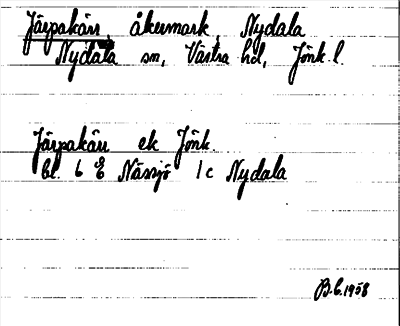 Järpakärr, åkermark, Nydala
Nydala sn, Västra hd, Jönk. l.
Järpakärr ek Jönk.
bl. 6 E Nässjö 1 c Nydala
B.E. 1958